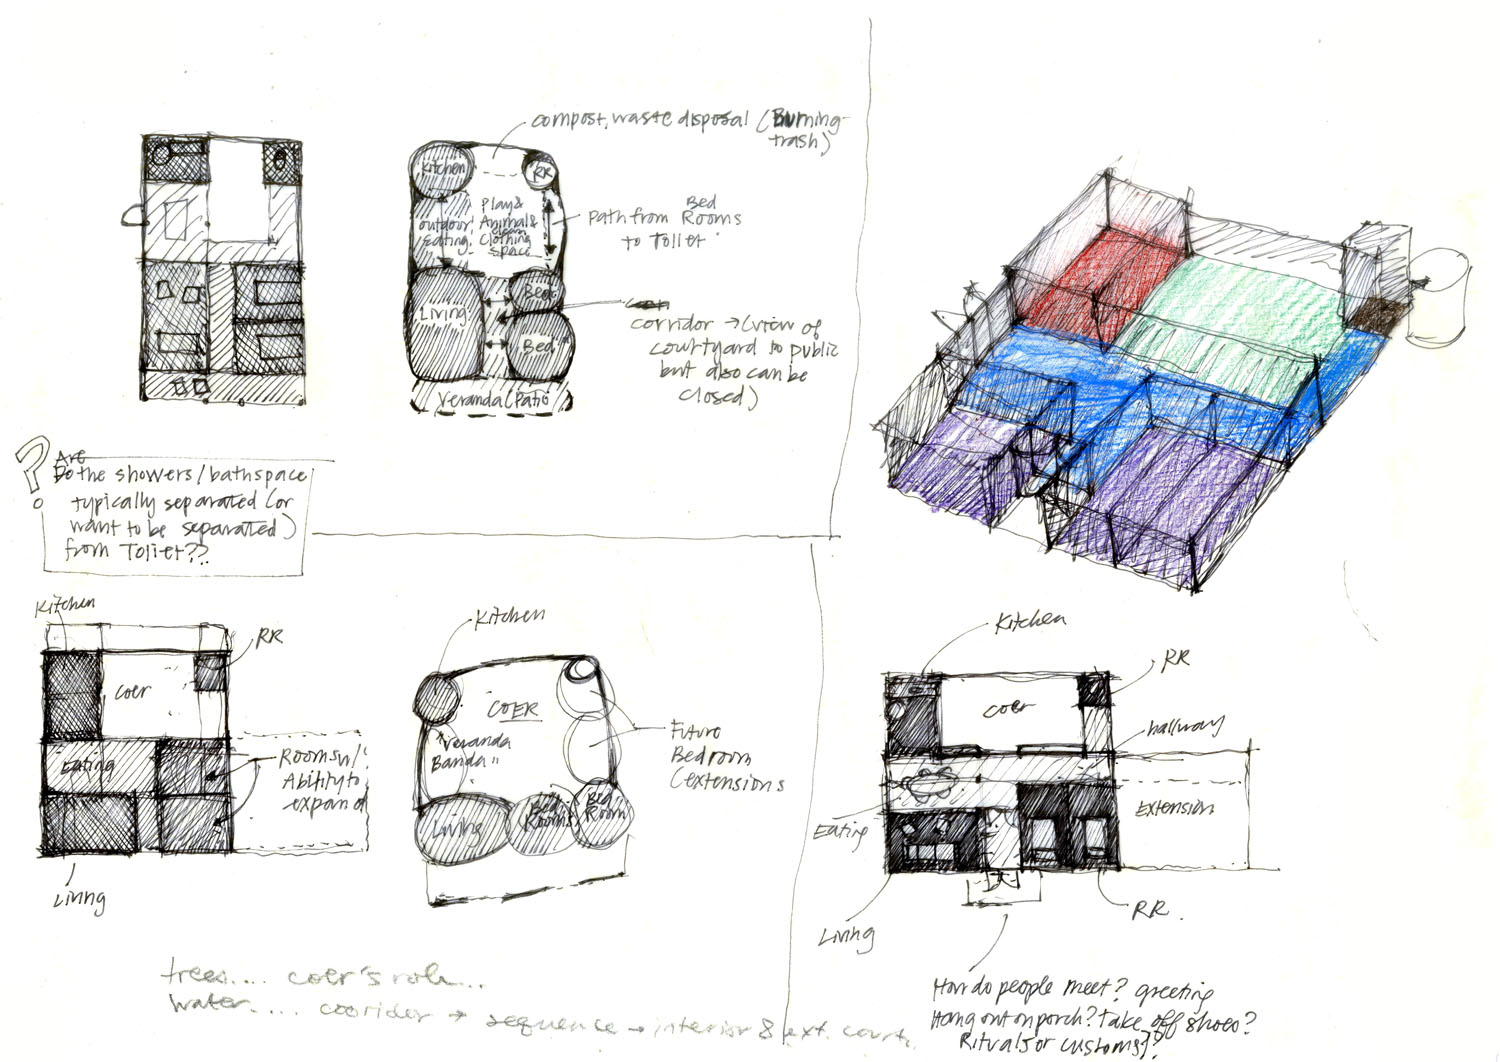 compost, waste disposal (Burning
trash)
Kitchen
RR
outdoor
Eating
Play &
Animal &
clean
Clothing
space
Path from Bed Rooms
to Toilet
Living
Bed
Bed
corridor → (view of
courtyard to public
but also can be
closed)
Veranda (Patio
?
Are
Do the showers/bathspace
typically separated (or
want to be separated)
from Toliet??
Kitchen
RR
coer
Eating
Rooms w/
Ability to
expand
Living
Kitchen
COER
"Veranda
Banda"
Future
Bedroom
(extensions
Living
Bed
Room
Bed
Room
Kitchen
RR
coer
hallway
Eating
Extension
Living
RR.
How do people meet? greeting
Hang out on porch? Take off shoes?
Rituals or customs]?
trees.... coer's role...
water.... cooridor → sequence → interior & ext. court.